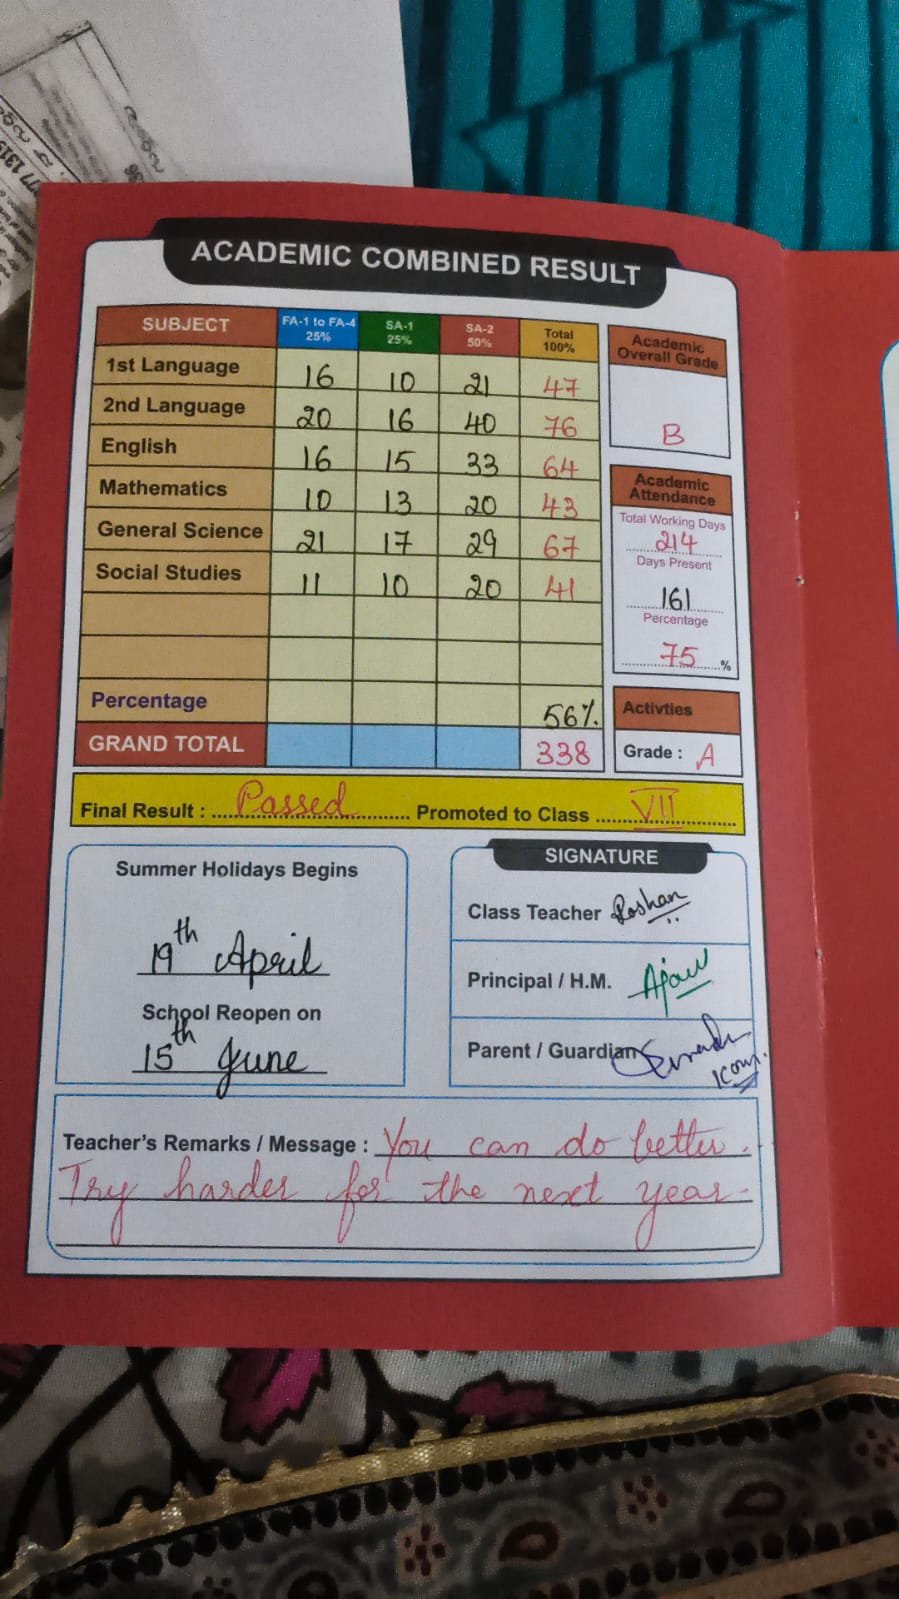 ACADEMIC COMBINED RESULT
SUBJECT FA-1 to FA-4 25% SA-1 25% SA-2 50% Total 100%
1st Language 16 10 21 47
2nd Language 20 16 40 76
English 16 15 33 64
Mathematics 10 13 20 43
General Science 21 17 29 67
Social Studies 11 10 20 41
Percentage 56%
GRAND TOTAL 338
Academic Overall Grade
B
Academic Attendance
Total Working Days
214
Days Present
161
Percentage
75 %
Activties
Grade : A
Final Result : Passed Promoted to Class VII
Summer Holidays Begins
19th April
School Reopen on
15th June
SIGNATURE
Class Teacher Roshan
Principal / H.M.
Parent / Guardian
Teacher's Remarks / Message : You can do better.
Try harder for the next year.